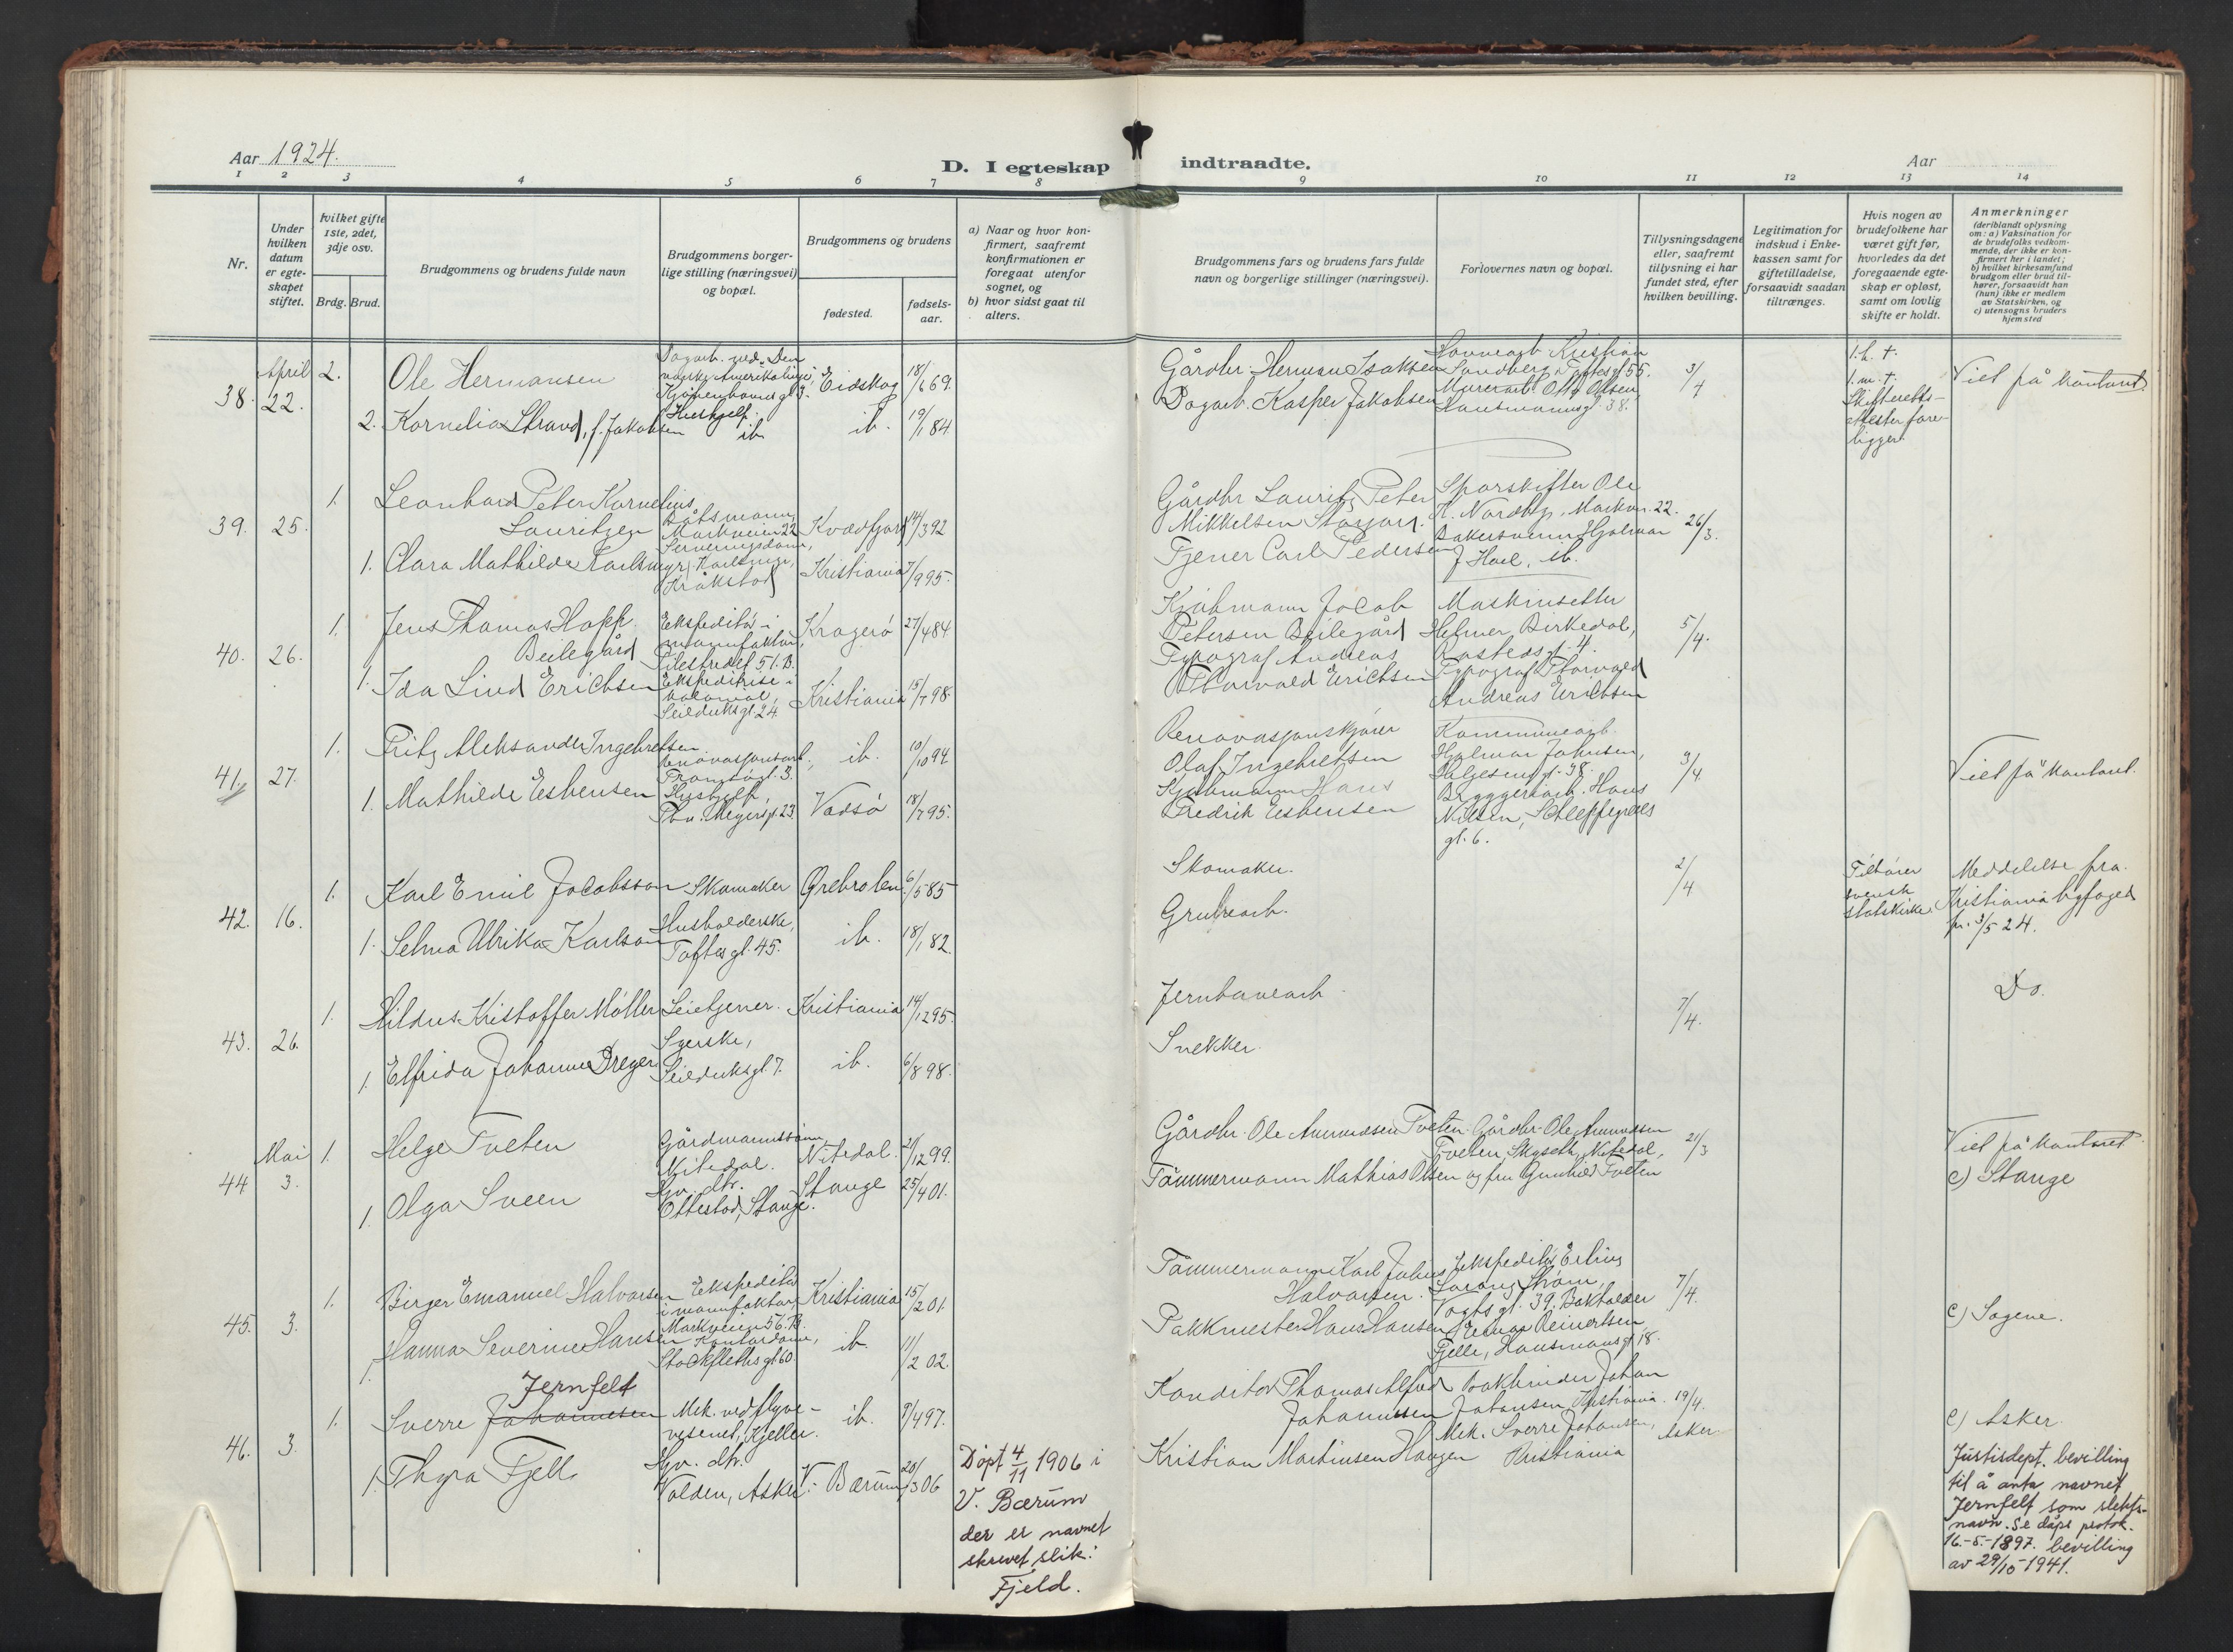 Aar 1924.
D. I egteskap indtraadte.
Aar
1 2 3 4 5 6 7 8 9 10 11 12 13 14
Nr.
Under hvilken datum er egteskapet stiftet.
hvilket gifte 1ste, 2det, 3dje osv.
Brdg. Brud.
Brudgommens og brudens fulde navn
Brudgommens borgerlige stilling (næringsvei) og bopæl.
Brudgommens og brudens
fødested.
fødselsaar.
a) Naar og hvor konfirmert, saafremt konfirmationen er foregaat utenfor sognet, og
b) hvor sidst gaat til alters.
Brudgommens fars og brudens fars fulde navn og borgerlige stillinger (næringsvei).
Forlovernes navn og bopæl.
Tillysningsdagene eller, saafremt tillysning ei har fundet sted, efter hvilken bevilling.
Legitimation for indskud i Enkekassen samt for giftetilladelse, forsaavidt saadan tiltrænges.
Hvis nogen av brudefolkene har været gift før, hvorledes da det foregaaende egteskap er opløst, samt om lovlig skifte er holdt.
Anmerkninger
(deriblandt oplysning om: a) Vaksination for de brudefolks vedkommende, der ikke er konfirmert her i landet; b) hvilket kirkesamfund brudgom eller brud tilhører, forsaavidt han (hun) ikke er medlem av Statskirken, og c) utensogns bruders hjemsted
38. April 22. 2. Ole Hermansen
Dagarb. ved "Den norske Amerikalinje", Kjøbenhavnsgt. 3.
Eidskog 18/6 69.
Gårdbr. Herman Isaksen
Havnearb. Kristian Sandberg, Toftesgt. 55.
3/4
1. h. †.
1. m. †.
Skifterettsattester foreligger.
Viet på kontoret.
2. Kornelia Strand, f. Jakobsen
Hushjelp. ib.
ib. 19/1 84.
Dagarb. Kasper Jakobsen
Murerarb. Otto Olsen, Hausmannsgt. 38.
39. 25. 1. Leonhard Peter Kornelius Lauritzen
Båtsmann, Markveien 22
Kvædfjord 14/3 92
Gårdbr. Lauritz Peter Mikkelsen
Sporskifter Ole K. Nordby, Markvn. 22.
26/3.
1. Clara Mathilde Karlsmyr
Serveringsdame, Karlsmyr, Kråkstad
Kristiania 7/9 95.
Tjener Carl Pedersen
Bakersvenn Hjalmar J. ib.
40. 26. 1. Jens Thomas Hopp Beilegård
Ekspeditør i manufaktur, Pilestredet 51. B.
Kragerø 27/4 84.
Kjøbmann Jacob Petersen Beilegård
Maskinsetter Helmer Birkedal, gt. 4.
5/4.
1. Ida Lind Erichsen
Ekspeditrise i kolonial, Seilduksgt. 24.
Kristiania 15/7 98.
Typograf Andreas Thorvald Erichsen
Typograf Thorvald Andreas Erichsen
41. 27. 1. Fritz Aleksander Ingebretsen
Renovasjonsarb., Tromsøgt. 3.
ib. 10/10 94.
Renovasjonskjører Olaf Ingebretsen
Kommunearb. Hjalmar Johnsen, Helgesensgt. 38.
3/4.
Viet på kontoret.
1. Mathilde Esbensen
Hushjelp, Thv. Meyersgt. 23.
Vadsø 18/7 95.
Kjøbmann Hans Fredrik Esbensen
Bryggeriarb. Hans Nilsen, Schleppegrells gt. 6.
42. 16. 1. Karl Emil Jacobsson
Skomaker
Ørebro len 6/5 85
Skomaker.
2/4
Tilhører svensk statskirke.
Meddelelse fra Kristiania byfoged pr. 3/5 24.
1. Selma Ulrika Karlson
Husholderske, Toftesgt. 45.
ib. 18/1 82.
Grubearb.
43. 26. 1. Hildus Kristoffer Møller
Leietjener.
Kristiania 14/12 95.
Jernbanearb.
7/4.
Do.
1. Elfrida Johanne Dreyer
Syerske, Seilduksgt. 7.
ib. 6/8 98.
Snekker.
44. Mai 3. 1. Helge Tveten
Gårdmannssønn, Nitedal.
Nitedal. 2/12 99.
Gårdbr. Ole Amundsen Tveten.
Gårdbr. Ole Amundsen Tveten, Skyseth, Nitedal, og fru Gunhild Tveten
21/3
Viet på kontoret.
c) Stange
1. Olga Sveen
Hjv. dtr. Ottestad, Stange.
Stange 25/4 01.
Tømmermann Mathias Olsen
45. 3. 1. Birger Emanuel Halvorsen
Ekspeditør i manufaktur, Markveien 56. B.
Kristiania 15/2 01.
Tømmermann Karl Johan Halvorsen.
Ekspeditør Erling Strøm, Vogtsgt. 39.
7/4.
c) Sagene.
1. Hanna Severine Hansen
Kontordame, Stockflethsgt. 60.
ib. 11/2 02.
Pakkmester Hans Hansen
Bokholder Reinertsen Fjelle, Hausmannsgt. 18.
46. 3. 1. Sverre Johannesen Jernfelt
Mek. ved flyvevesenet, Kjeller.
ib. 9/4 97.
Konditor Thomas Alfred Johannesen
Bokbinder Johan Johansen, Kristiania.
19/4. Asker.
c) Asker.
1. Thyra Fjell
Hjv. dtr. Valden, Asker
V. Bærum 20/3 06
Døpt 4/11 1906 i V. Bærum der er navnet skrevet slik: Fjeld.
Kristian Martinsen Haugen
Mek. Sverre Johansen, Kristiania
Justisdept. bevilling til å anta navnet Jernfelt som slektsnavn. Se dåps protok. 16.-5.-1897. bevilling av 29/10-1941.